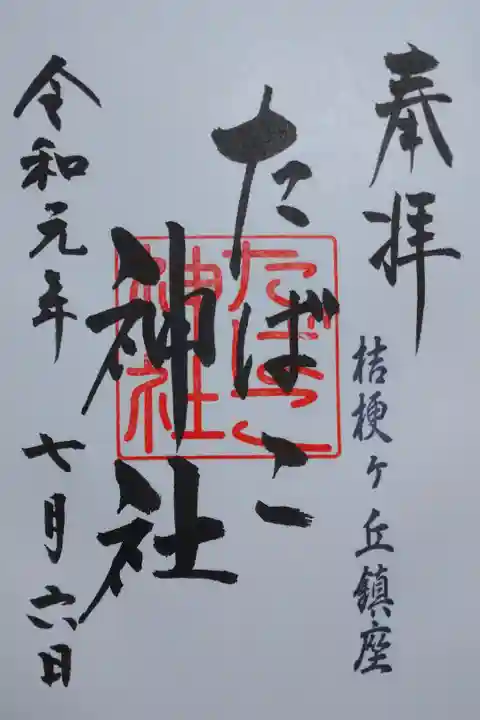 奉拝
桔梗ヶ丘鎮座
たばこ
神社
たばこ
神社
令和元年 七月六日